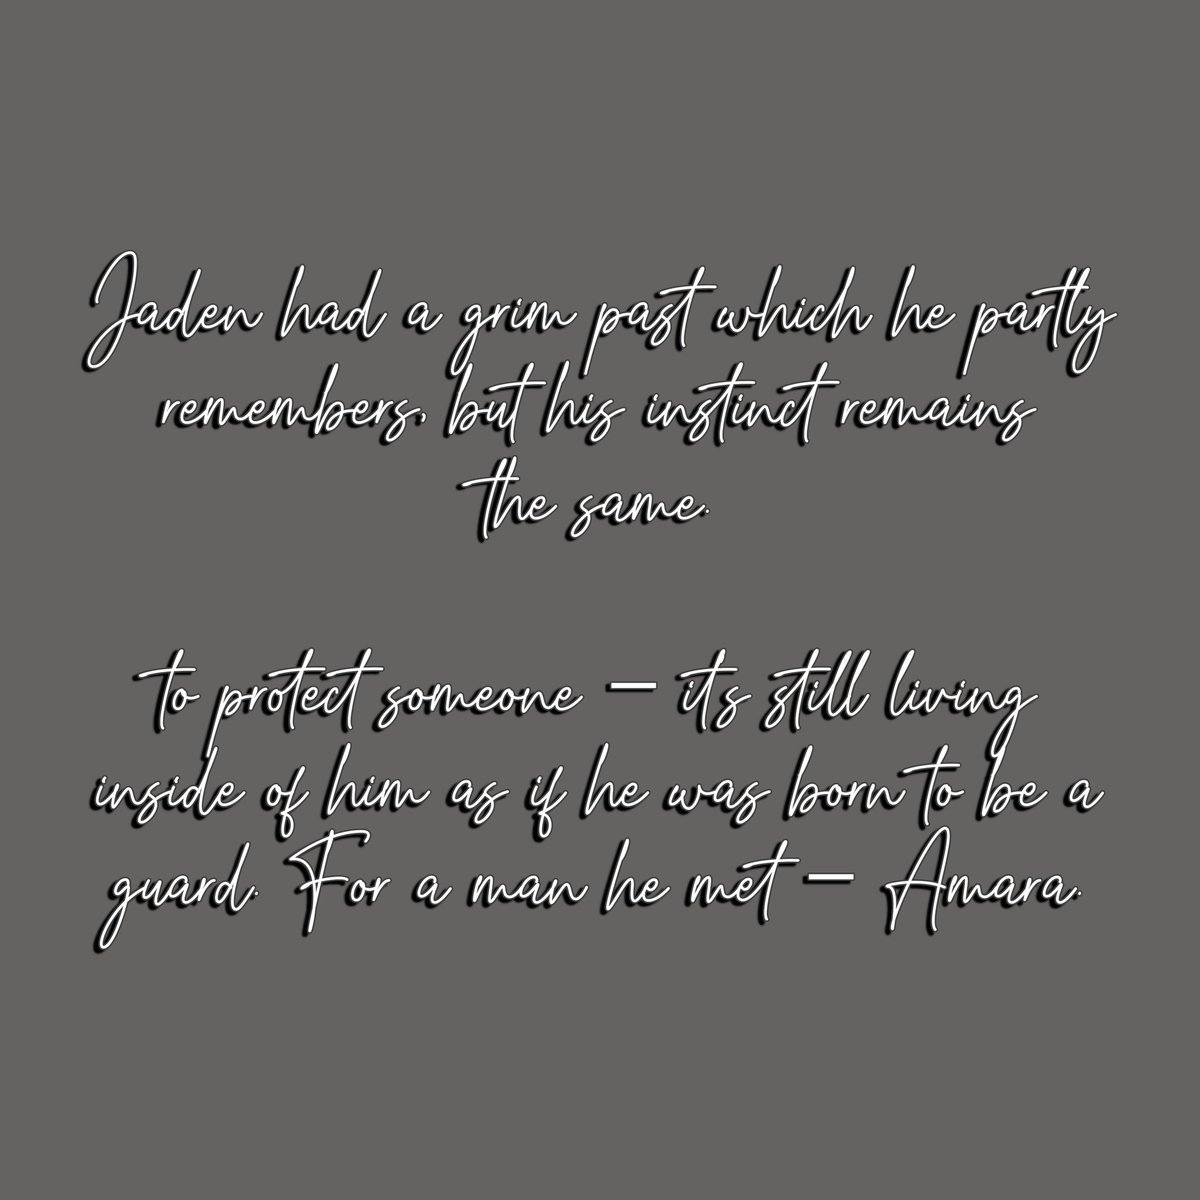 Jaden had a grim past which he partly
remembers, but his instinct remains
the same.
to protect someone — its still living
inside of him as if he was born to be a
guard. For a man he met — Amara.